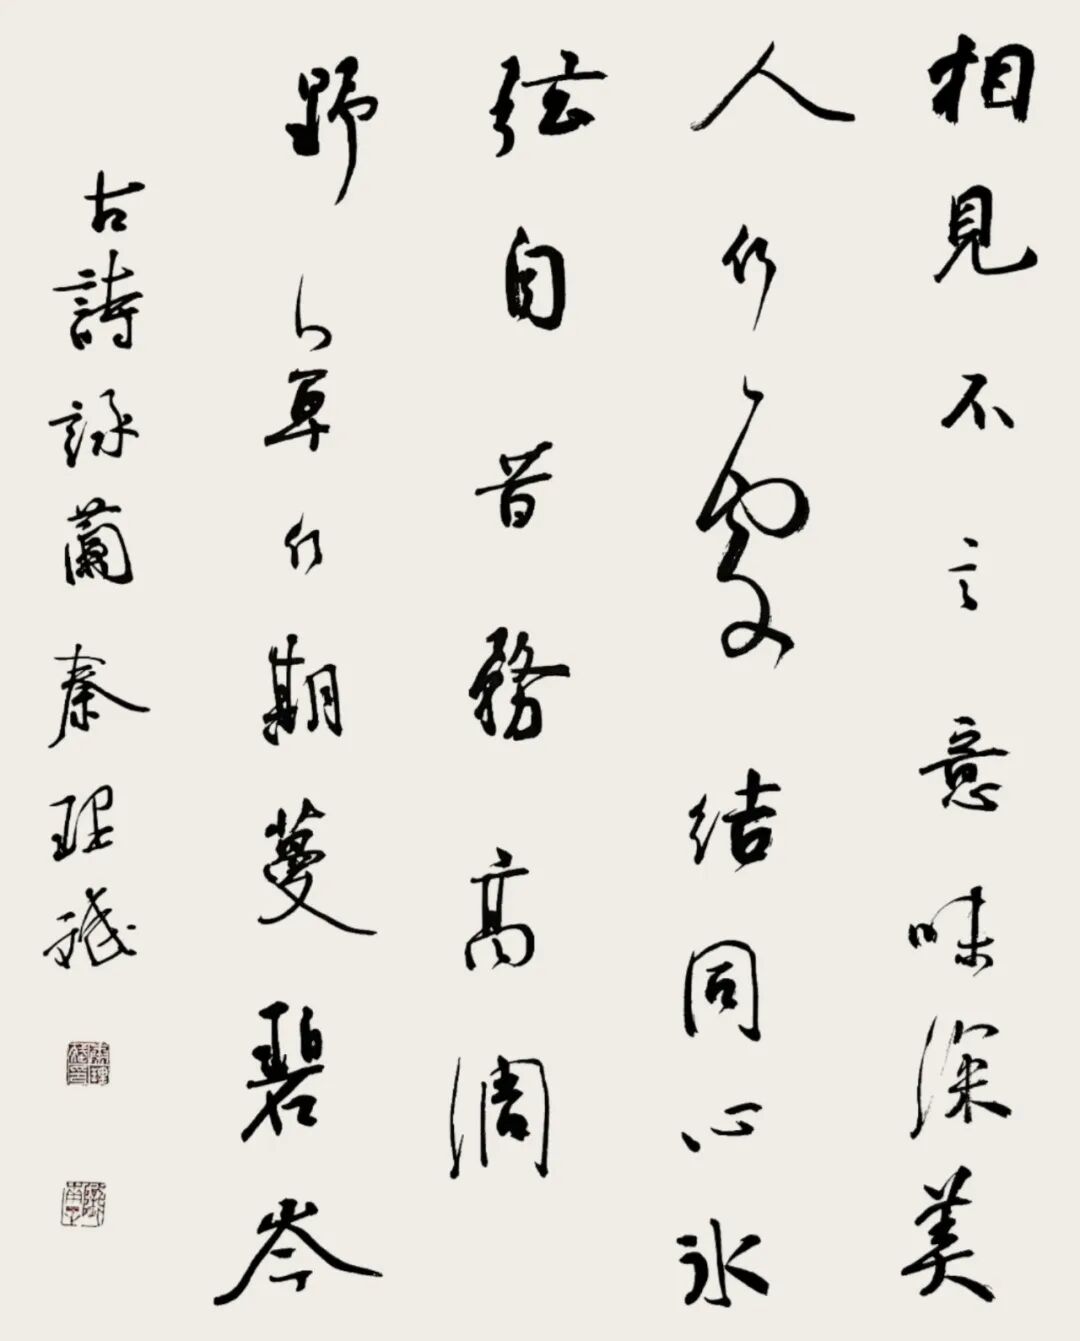 相見不言意味深美
人何處結同心冰
弦自昔務高調
野草何期蔓碧岑
古詩詠蘭秦理斌